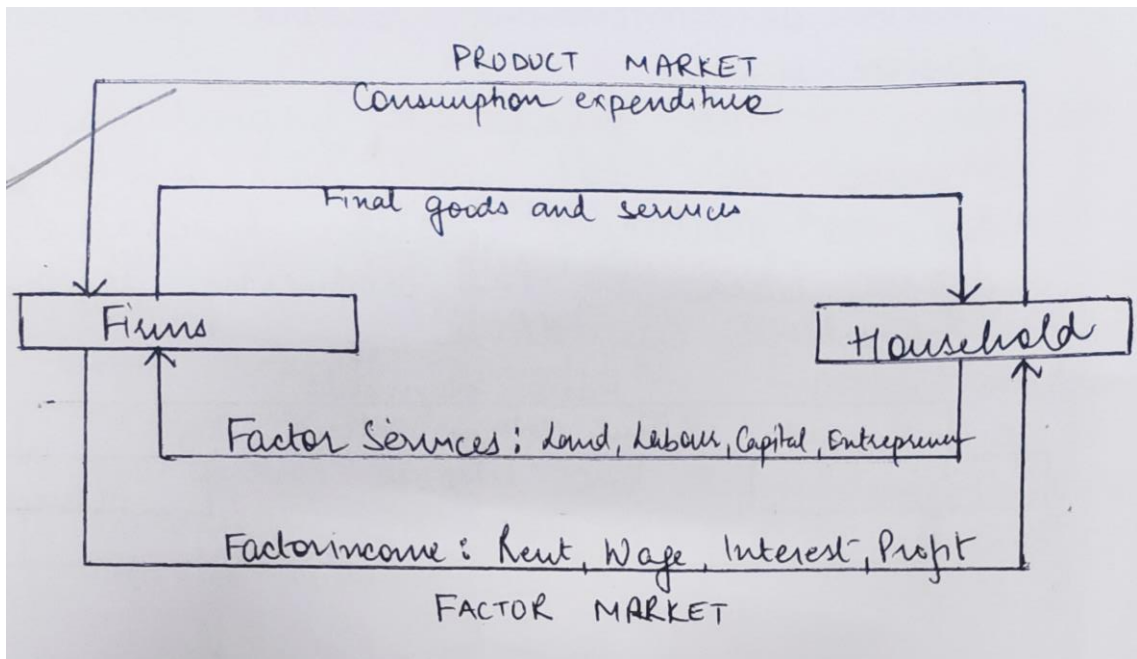 PRODUCT MARKET
Consumption expenditure
Final goods and services
Firms
Household
Factor Services: Land, Labour, Capital, Entrepreneur
Factor income: Rent, Wage, Interest, Profit
FACTOR MARKET